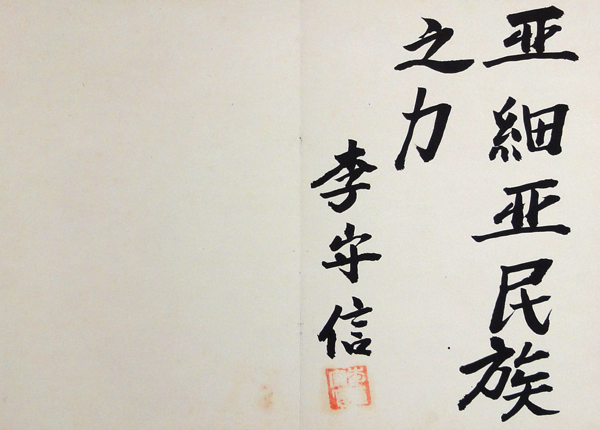 亚細亚民族
之力
李守信